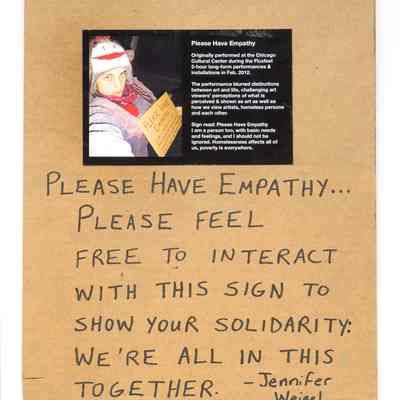 Please Have Empathy
Originally performed at the Chicago
Cultural Center during the Fluxfest
2-hour long-form performances &
installations in Feb. 2012.
The performance blurred distinctions
between art and life, challenging art
viewers' perceptions of what is
perceived & shown as art as well as
how we view artists, homeless persons
and each other.
Sign read: Please Have Empathy
I am a person too, with basic needs
and feelings, and I should not be
ignored. Homelessness affects all of
us, poverty is everywhere.
PLEASE HAVE EMPATHY...
PLEASE FEEL
FREE TO INTERACT
WITH THIS SIGN TO
SHOW YOUR SOLIDARITY:
WE'RE ALL IN THIS
TOGETHER. - Jennifer
Weigel